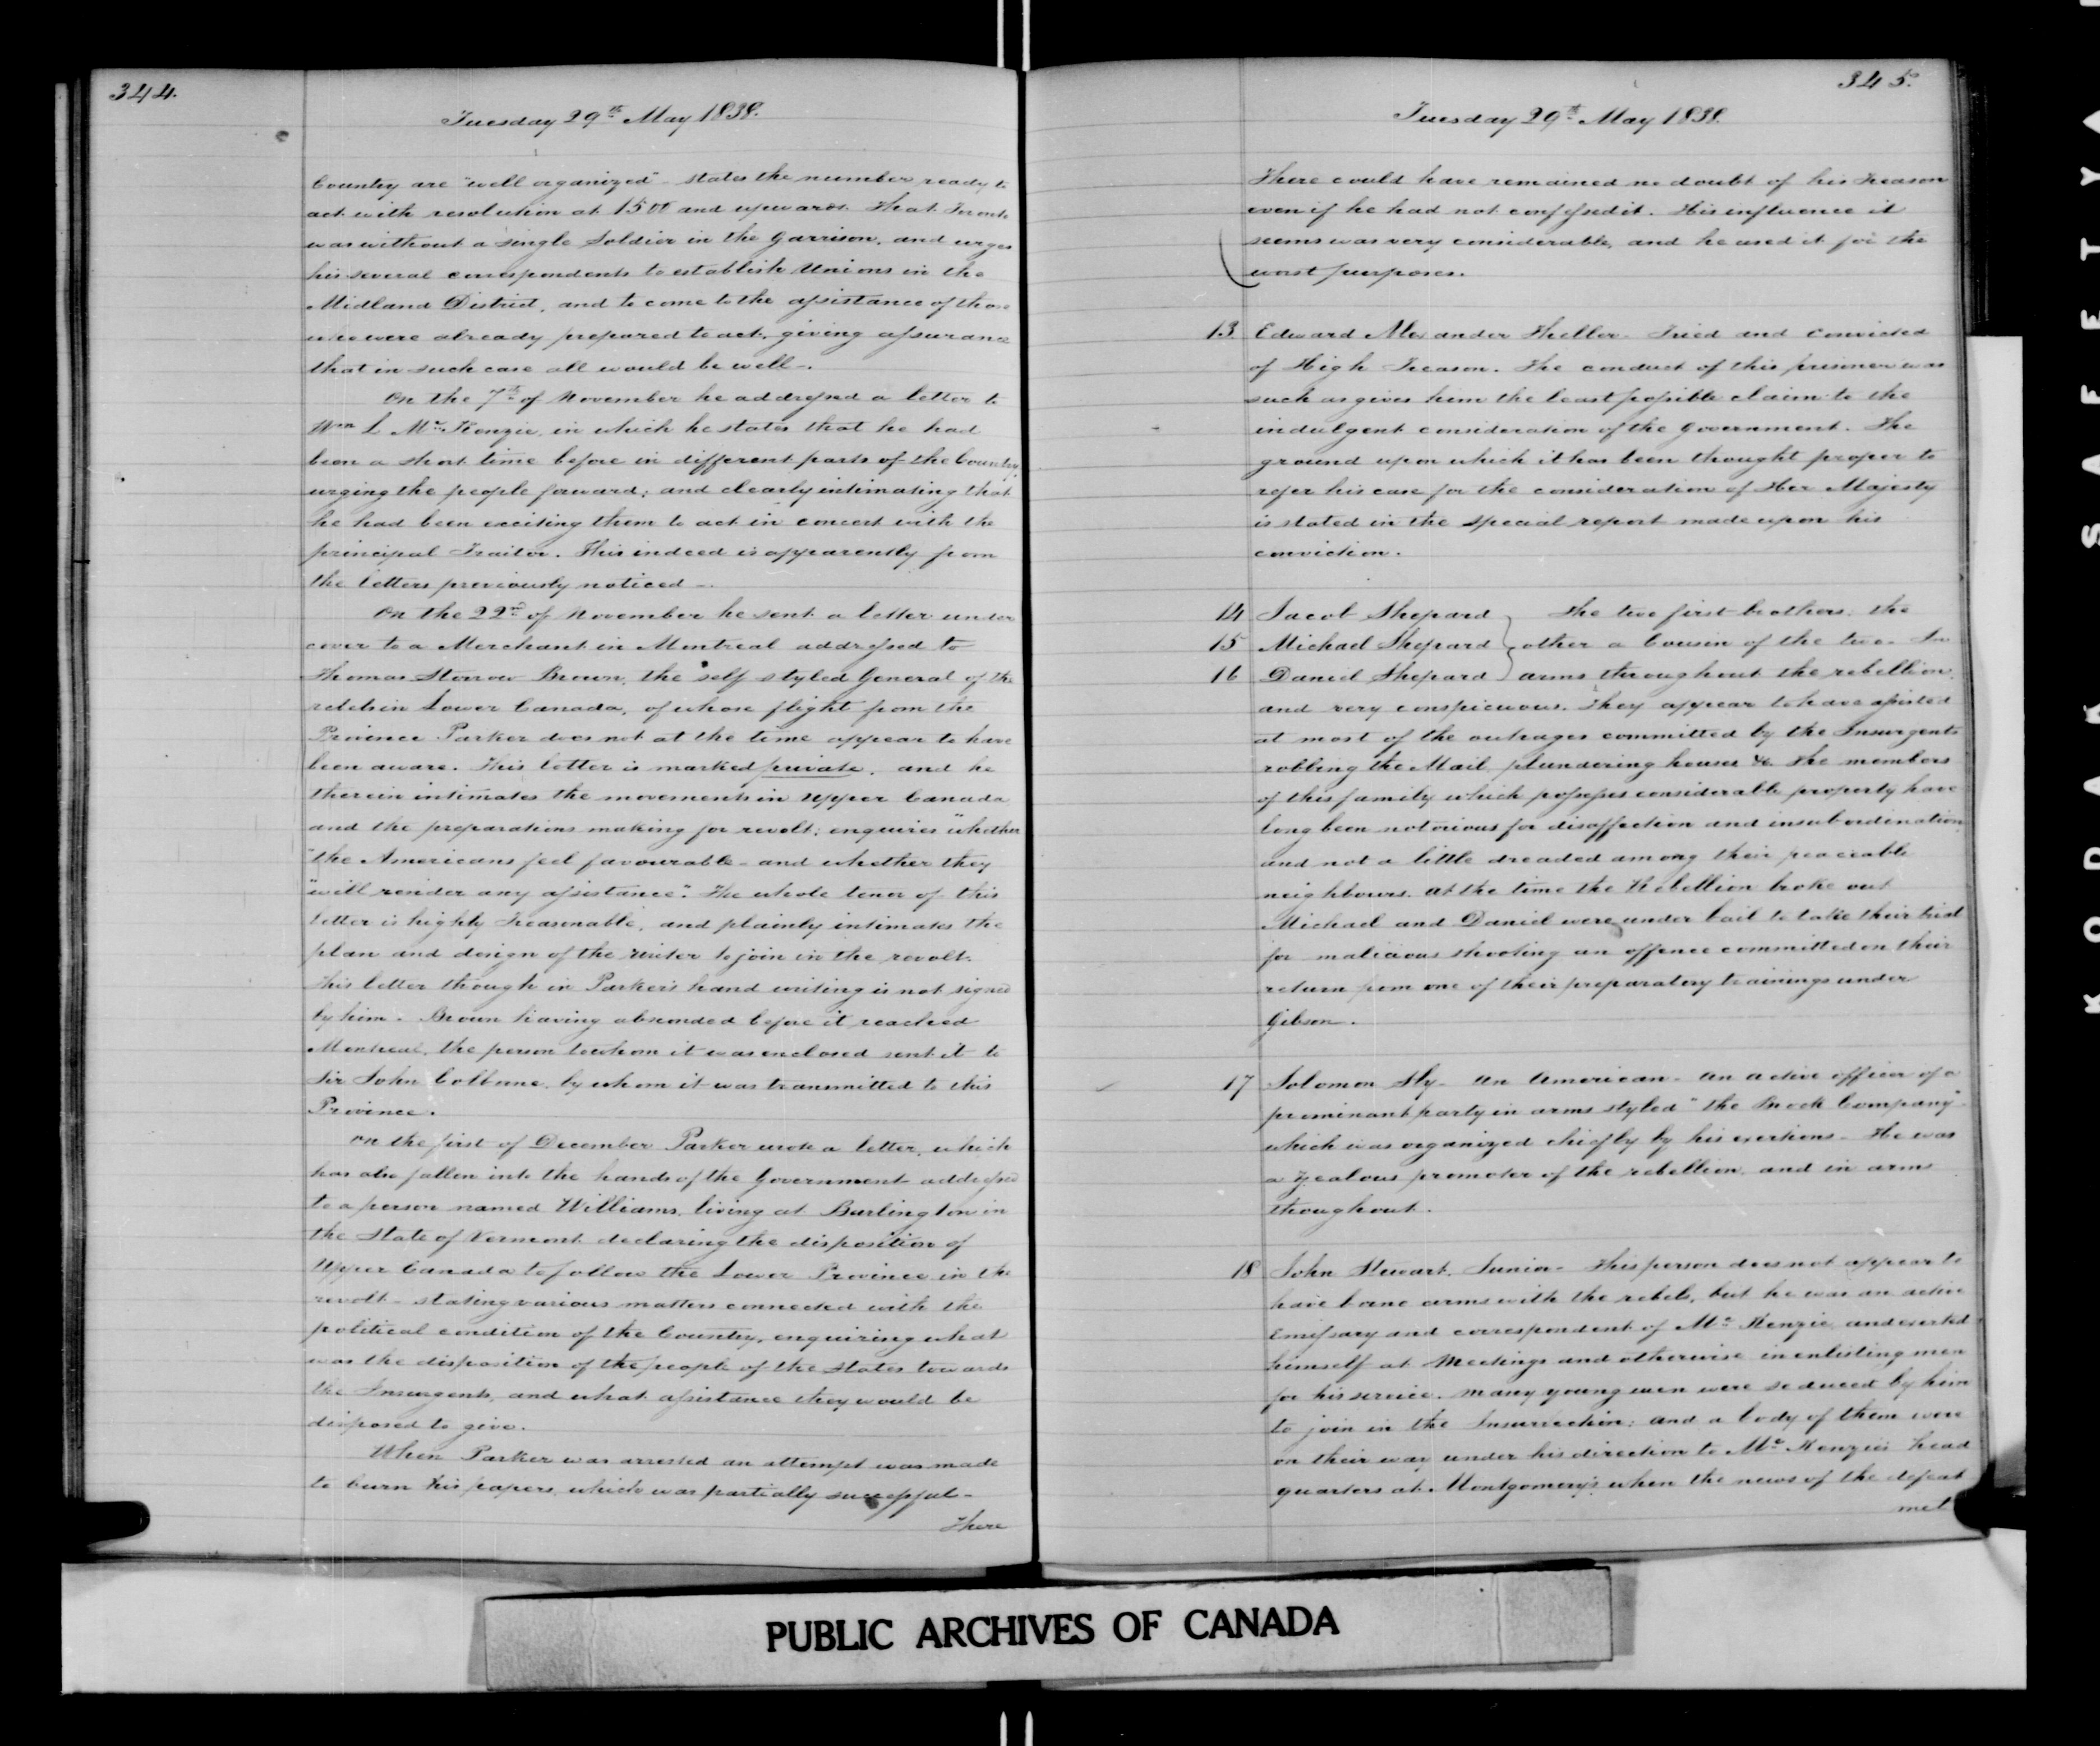 344.
Tuesday 29th May 1838.
Country are "well organized" – states the number ready to
act with resolution at 1500 and upwards. That Toronto
was without a single Soldier in the Garrison, and urges
his several correspondents to establish Unions in the
Midland District, and to come to the assistance of those
who were already prepared to act, giving assurance
that in such case all would be well –.
On the 7th of November he addressed a letter to
Wm L McKenzie, in which he states that he had
been a short time before in different parts of the Country,
urging the people forward; and clearly intimating that
he had been exciting them to act in concert with the
principal Traitor. This indeed is apparently from
the letters previously noticed –.
On the 22nd of November he sent a letter under
cover to a Merchant in Montreal addressed to
Thomas Storrow Brown, the self styled General of the
rebels in Lower Canada, of whose flight from the
Province Parker does not at the time appear to have
been aware. This letter is marked private, and he
therein intimates the movements in Upper Canada
and the preparations making for revolt; enquires "whether
"the Americans feel favourable – and whether they
"will render any assistance". The whole tenor of this
letter is highly Treasonable, and plainly intimates the
plan and design of the writer to join in the revolt.
This letter though in Parker's hand writing is not signed
by him. Brown having absconded before it reached
Montreal, the person to whom it was enclosed sent it to
Sir John Colborne, by whom it was transmitted to this
Province.
On the first of December Parker wrote a letter, which
has also fallen into the hands of the Government addressed
to a person named Williams, living at Burlington in
the State of Vermont declaring the disposition of
Upper Canada to follow the Lower Province in the
revolt – stating various matters connected with the
political condition of the Country, enquiring what
was the disposition of the people of the States towards
the Insurgents, and what assistance they would be
disposed to give.
When Parker was arrested an attempt was made
to burn his papers, which was partially successful –
There
345.
Tuesday 29th May 1838.
There could have remained no doubt of his Treason
even if he had not confessed it. His influence it
seems was very considerable, and he used it for the
worst purposes.
13 Edward Alexander Theller – Tried and Convicted
of High Treason. The conduct of this prisoner was
such as gives him the least possible claim to the
indulgent consideration of the Government. The
ground upon which it has been thought proper to
refer his case for the consideration of Her Majesty
is stated in the special report made upon his
conviction.
14 Jacob Shepard } The two first brothers; the
15 Michael Shepard } other a Cousin of the two – In
16 Daniel Shepard } arms throughout the rebellion,
and very conspicuous. They appear to have assisted
at most of the outrages committed by the Insurgents
robbing the Mail, plundering houses &c. The members
of this family which possesses considerable property have
long been notorious for disaffection and insubordination
and not a little dreaded among their peaceable
neighbours. At the time the Rebellion broke out
Michael and Daniel were under bail to take their trial
for malicious shooting an offence committed on their
return from one of their preparatory trainings under
Gibson.
17 Solomon Sly – An American – An active officer of a
prominant party in arms styled "the Brock Company"
which was organized chiefly by his exertions – He was
a zealous promoter of the rebellion, and in arms
throughout.
18 John Stewart, Junior – This person does not appear to
have borne arms with the rebels, but he was an active
Emissary and correspondent of McKenzie, and exerted
himself at Meetings and otherwise in enlisting men
for his service. Many young men were seduced by him
to join in the Insurrection; and a body of them were
on their way under his direction to McKenzie's head
quarters at Montgomery's when the news of the defeat
met
PUBLIC ARCHIVES OF CANADA